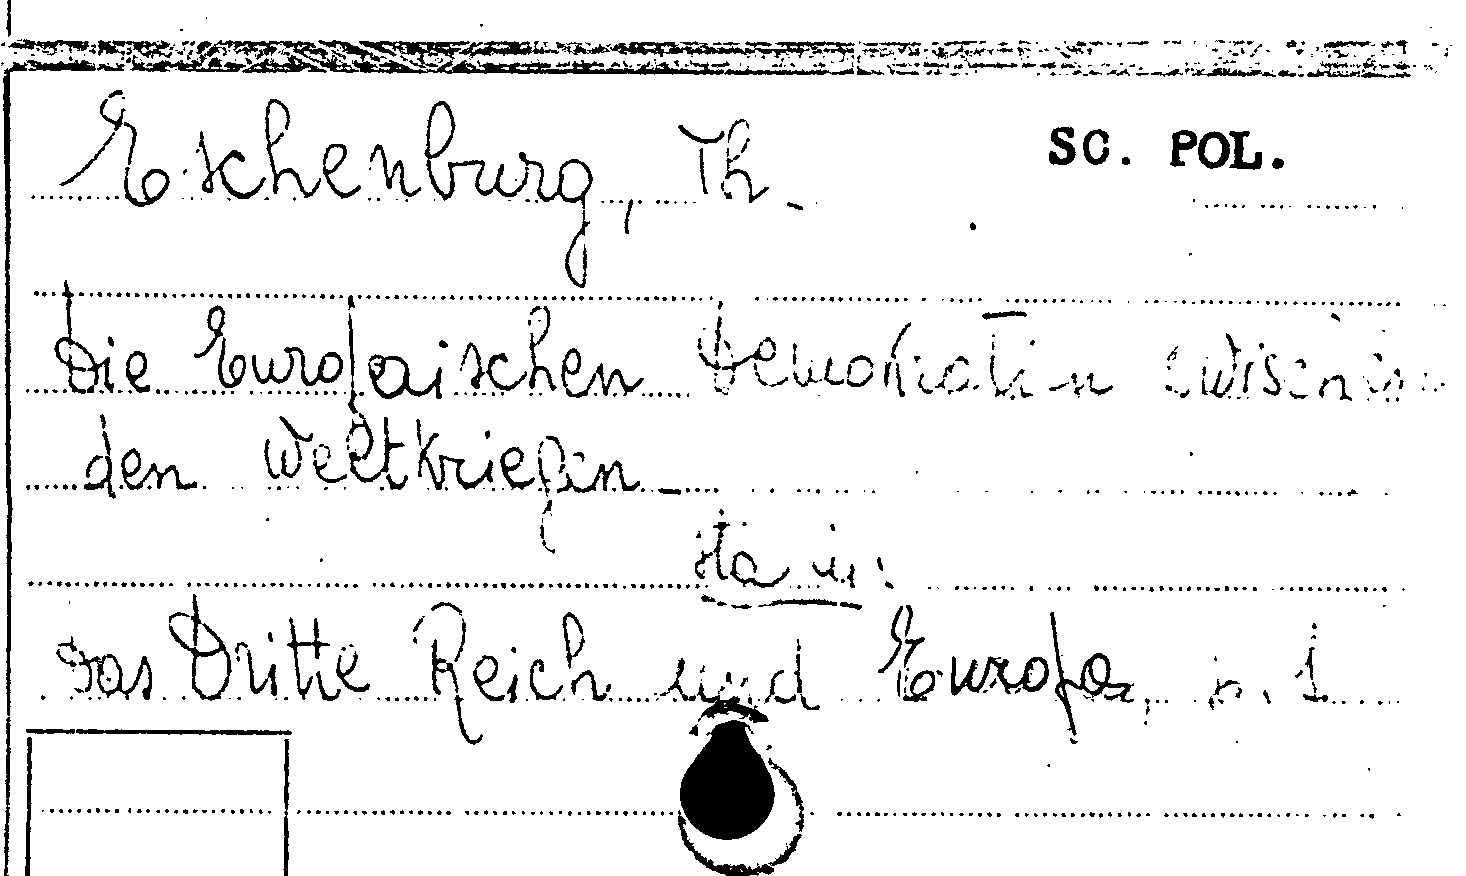 Eschenburg, Th. SC. POL.
Die Europaischen Demokratien zwischen
den Weltkriegen.
Sta in:
Das Dritte Reich und Europa, p. 1